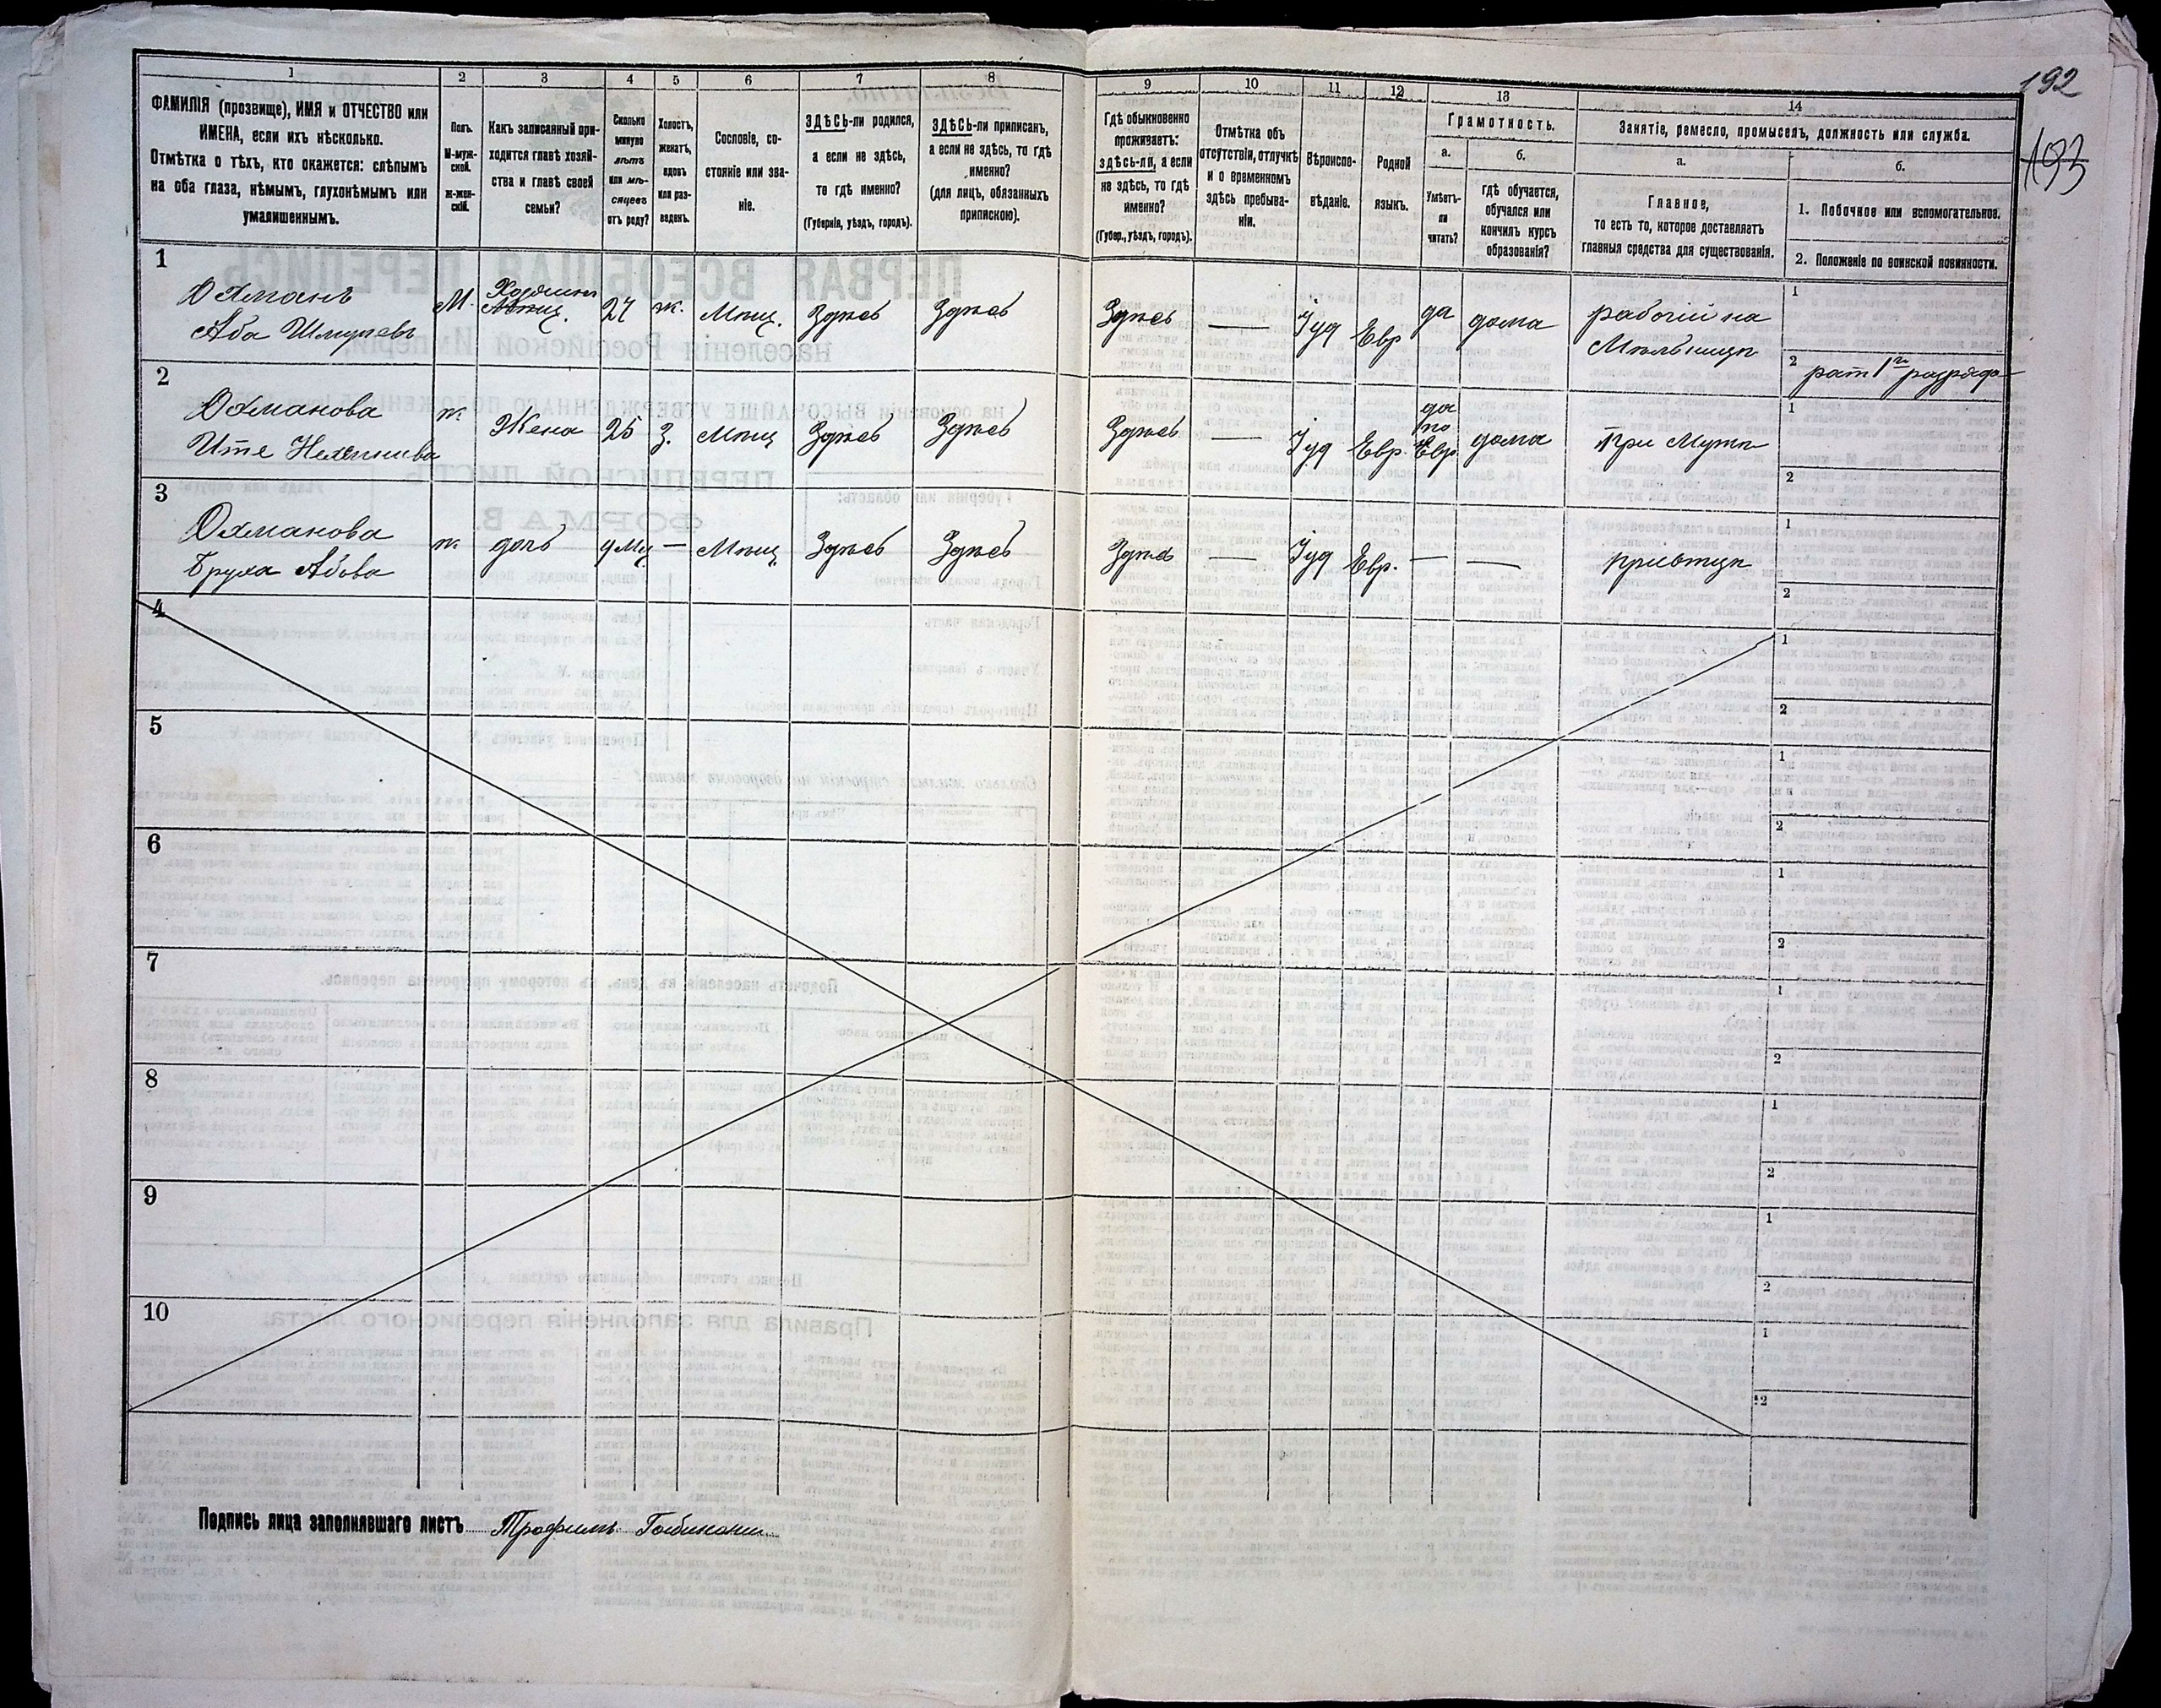 192
193
1
2
3
4
5
6
7
8
9
10
11
12
13
14
ФАМИЛІЯ (прозвище), ИМЯ и ОТЧЕСТВО или
ИМЕНА, если ихъ нѣсколько.
Отмѣтка о тѣхъ, кто окажется: слѣпымъ
на оба глаза, нѣмымъ, глухонѣмымъ или
умалишеннымъ.
Полъ.
М-муж-
ской.
Ж-жен-
скій.
Какъ записанный при-
ходится главѣ хозяй-
ства и главѣ своей
семьи?
Сколько
минуло
лѣтъ
или мѣ-
сяцевъ
отъ роду?
Холостъ,
женатъ,
вдовъ
или раз-
веденъ.
Сословіе, со-
стояніе или зва-
ніе.
ЗДѢСЬ-ли родился,
а если не здѣсь,
то гдѣ именно?
(Губернія, уѣздъ, городъ).
ЗДѢСЬ-ли приписанъ,
а если не здѣсь, то гдѣ
именно?
(для лицъ, обязанныхъ
припискою).
Гдѣ обыкновенно
проживаетъ:
здѣсь-ли, а если
не здѣсь, то гдѣ
именно?
(Губер., уѣздъ, городъ).
Отмѣтка объ
отсутствіи, отлучкѣ
и о временномъ
здѣсь пребыва-
ніи.
Вѣроиспо-
вѣданіе.
Родной
языкъ.
Грамотность.
а.
б.
Умѣетъ-
ли
читать?
Гдѣ обучается,
обучался или
кончилъ курсъ
образованія?
Занятіе, ремесло, промыселъ, должность или служба.
а.
б.
Главное,
то есть то, которое доставляетъ
главныя средства для существованія.
1. Побочное или вспомогательное.
2. Положеніе по воинской повинности.
1
Охманъ
Аба Шмулевъ
М.
Хозяинъ
27
ж.
Мѣщ.
Здѣсь
Здѣсь
Здѣсь
—
Іуд
Евр
да
дома
рабочій на
Мельницѣ
1
2
рат 1го разряда
2
Охманова
Ите
ж.
Жена
25
З.
Мѣщ
Здѣсь
Здѣсь
Здѣсь
—
Іуд
Евр.
да
по
Евр
дома
При Мужѣ
1
2
3
Охманова
Бруха Абова
ж.
дочь
9 мц
—
Мѣщ.
Здѣсь
Здѣсь
Здѣсь
—
Іуд
Евр.
—
—
при отцѣ
1
2
4
1
2
5
1
2
6
1
2
7
1
2
8
1
2
9
1
2
10
1
2
Подпись лица заполнявшаго листъ Трофимъ